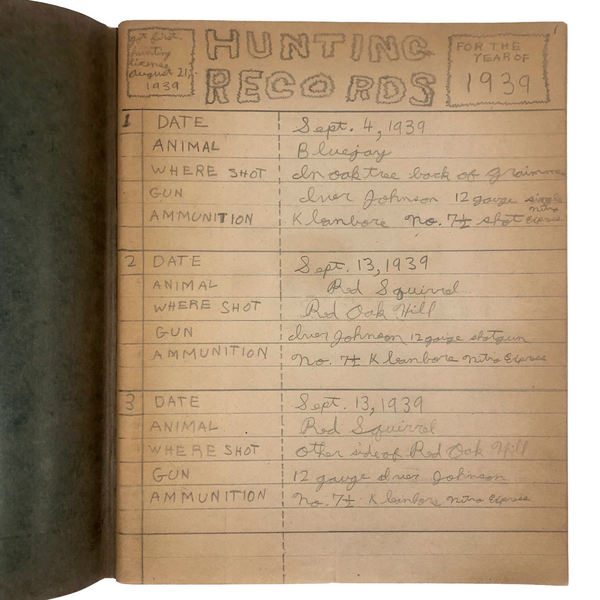 got first
hunting
license
August 21,
1939
HUNTING
RECORDS
FOR THE
YEAR OF
1939
1
1 DATE Sept. 4, 1939
ANIMAL Bluejay
WHERE SHOT In oak tree back of
GUN Iver Johnson 12 gauge single
AMMUNITION Kleanbore No. 7½ shot Nitro Express
2 DATE Sept. 13, 1939
ANIMAL Red Squirrel
WHERE SHOT Red Oak Hill
GUN Iver Johnson 12 gauge shotgun
AMMUNITION No. 7½ Kleanbore Nitro Express
3 DATE Sept. 13, 1939
ANIMAL Red Squirrel
WHERE SHOT other side of Red Oak Hill
GUN 12 gauge Iver Johnson
AMMUNITION No. 7½ Kleanbore Nitro Express